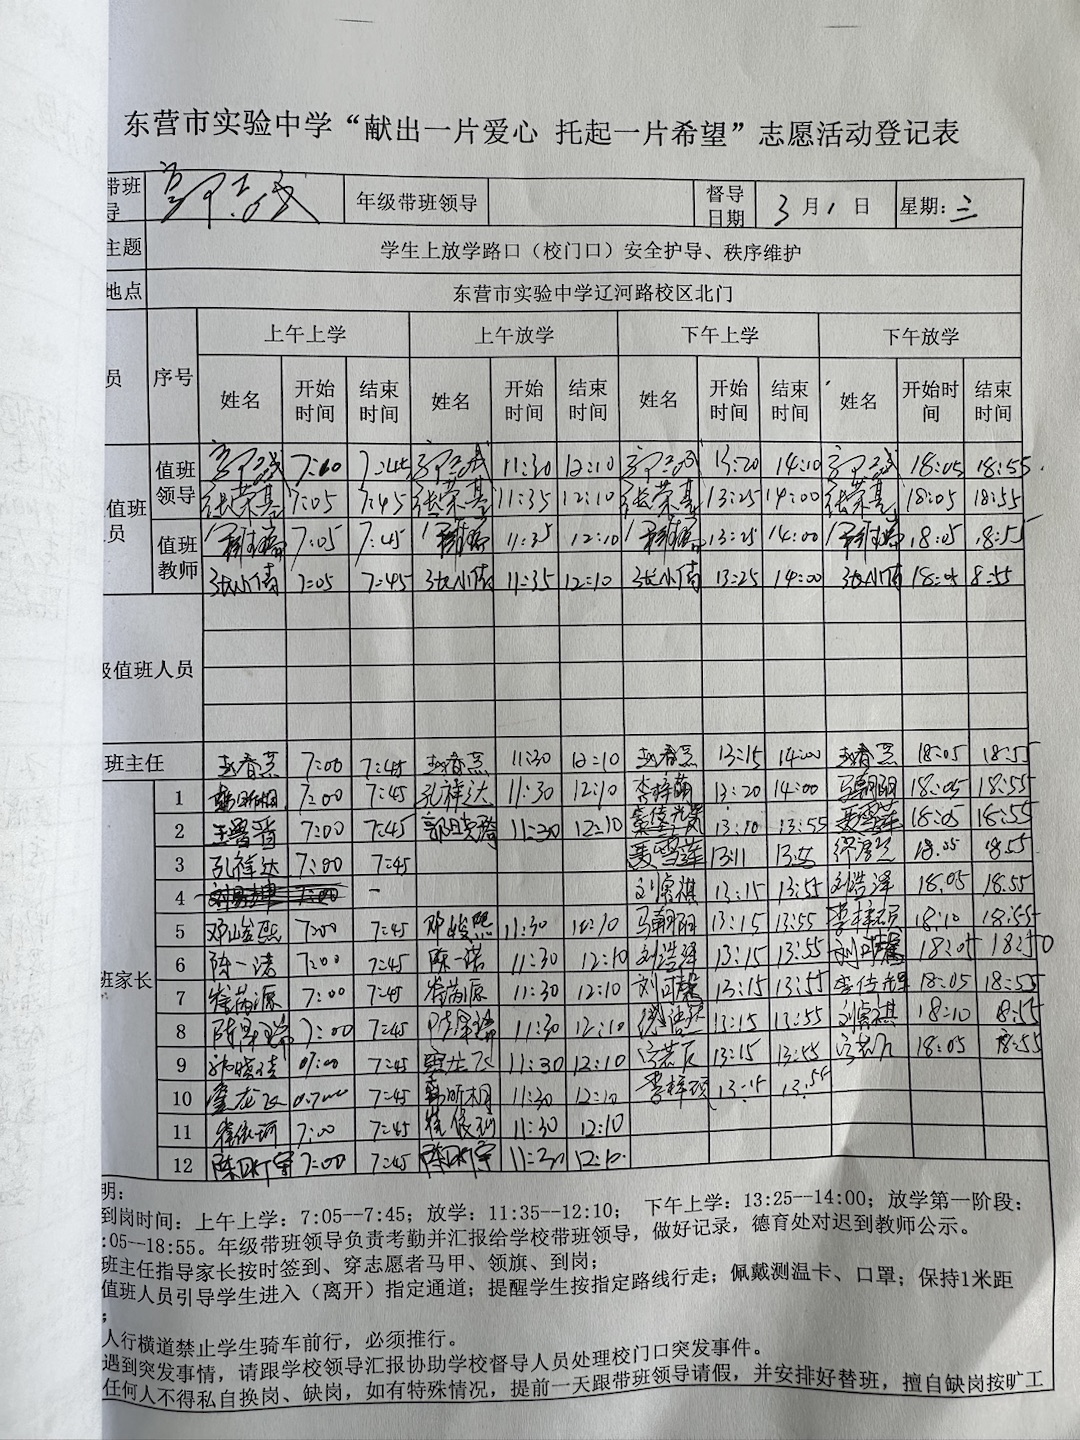 东营市实验中学“献出一片爱心 托起一片希望”志愿活动登记表
带班 年级带班领导 督导
导 日期 3月1日 星期:三
主题 学生上放学路口（校门口）安全护导、秩序维护
地点 东营市实验中学辽河路校区北门
员 序号 上午上学 上午放学 下午上学 下午放学
姓名 开始时间 结束时间 姓名 开始时间 结束时间 姓名 开始时间 结束时间 姓名 开始时间 结束时间
值班 值班领导 7:45 11:30 12:10 13:20 14:10 18:05 18:55
员 张荣基 7:05 7:45 张荣基 11:35 12:10 张荣基 13:25 14:00 张荣基 18:05 18:55
值班教师 7:05 7:45 11:35 12:10 13:25 14:00 18:05 18:55
张小倩 7:05 7:45 张小倩 11:35 12:10 张小倩 13:25 14:00 张小倩 18:05 8:55
级值班人员
班主任 赵春燕 7:00 7:45 赵春燕 11:30 12:10 赵春燕 13:15 14:00 赵春燕 18:05 18:55
班家长 1 7:00 7:45 孔祥达 11:30 12:10 13:20 14:00 马朝阳 18:05 18:55
2 7:00 7:45 11:30 12:10 13:10 13:55 聂雪莲 18:05 18:55
3 孔祥达 7:00 7:45 聂雪莲 13:11 18:05 18:55
4 7:00 - 刘睿祺 13:15 13:55 刘浩泽 18:05 18:55
5 邓峻熙 7:00 7:45 邓峻熙 11:30 12:10 马朝阳 13:15 13:55 18:10 18:55
6 陈一诺 7:00 7:45 陈一诺 11:30 12:10 刘浩泽 13:15 13:55 18:05 18:50
7 7:00 7:45 11:30 12:10 13:15 13:55 18:05 18:55
8 7:00 7:45 11:30 12:10 13:15 13:55 刘睿祺 18:10 18:55
9 07:00 7:45 11:30 12:10 13:15 13:55 18:05 18:55
10 7:45 韩昕桐 11:30 12:10 李梓硕 13:15 13:55
11 7:00 7:45 11:30 12:10
12 7:00 7:45 11:30 12:10
明：
到岗时间：上午上学：7:05--7:45；放学：11:35--12:10； 下午上学：13:25--14:00；放学第一阶段：
:05--18:55。年级带班领导负责考勤并汇报给学校带班领导，做好记录，德育处对迟到教师公示。
班主任指导家长按时签到、穿志愿者马甲、领旗、到岗；
值班人员引导学生进入（离开）指定通道；提醒学生按指定路线行走；佩戴测温卡、口罩；保持1米距
；
人行横道禁止学生骑车前行，必须推行。
遇到突发事情，请跟学校领导汇报协助学校督导人员处理校门口突发事件。
任何人不得私自换岗、缺岗，如有特殊情况，提前一天跟带班领导请假，并安排好替班，擅自缺岗按旷工